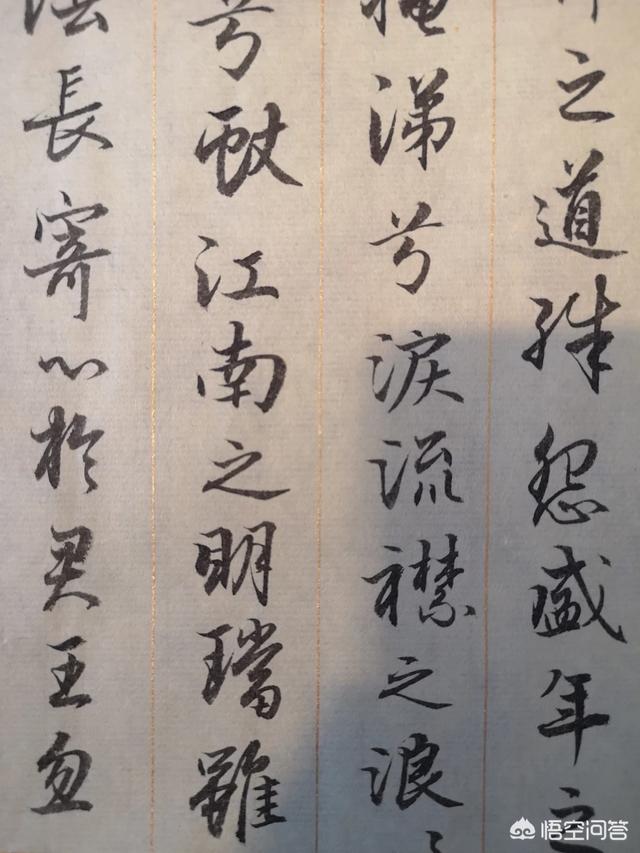 之道殊怨盛年之
掩涕兮淚流襟之浪
兮獻江南之明璫雖
長寄心於君王忽
悟空问答